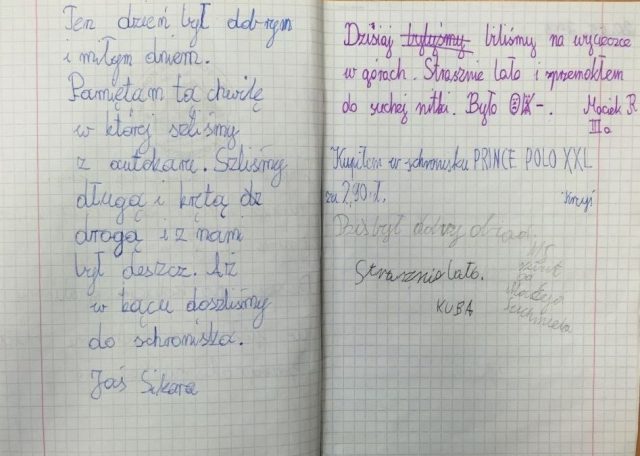 Ten dzień był dobrym
i miłym dniem.
Pamiętam tą chwilę
w której szliśmy
z autokaru. Szliśmy
długą i krętą dr
drogą i z nami
był deszcz. Aż
w kącu doszliśmy
do schroniska.
Jaś Sikora
Dzisiaj byliśmy biliśmy na wycieczce
w górach. Strasznie lało i przemokłem
do suchej nitki. Było -.
Maciek R
III a
Kupiłem w schronisku PRINCE POLO XXL
za 2,90 zł.
Krzyś
Dziś był dobry obiad
Strasznie lało.
KUBA